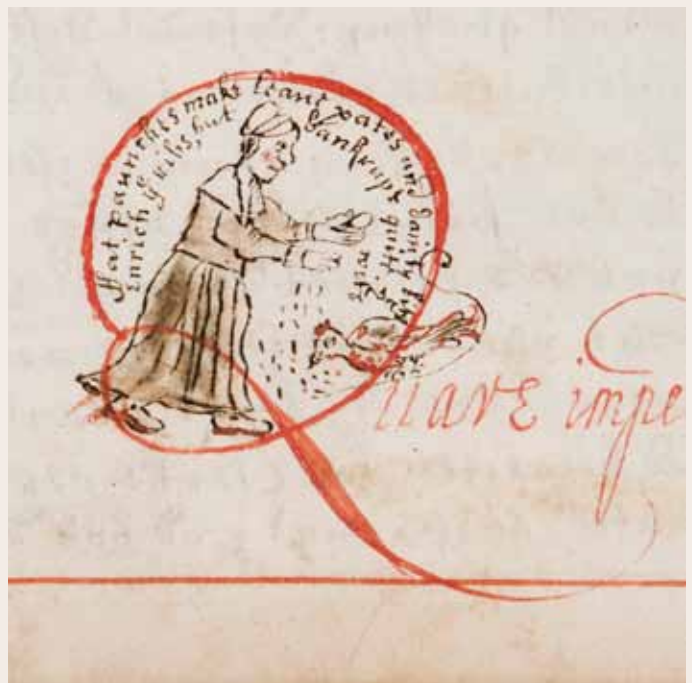 ffat paunches make leane pates and dainty bits
Enrich ye ribs, but bankrupt quite ye wits
Quare impe